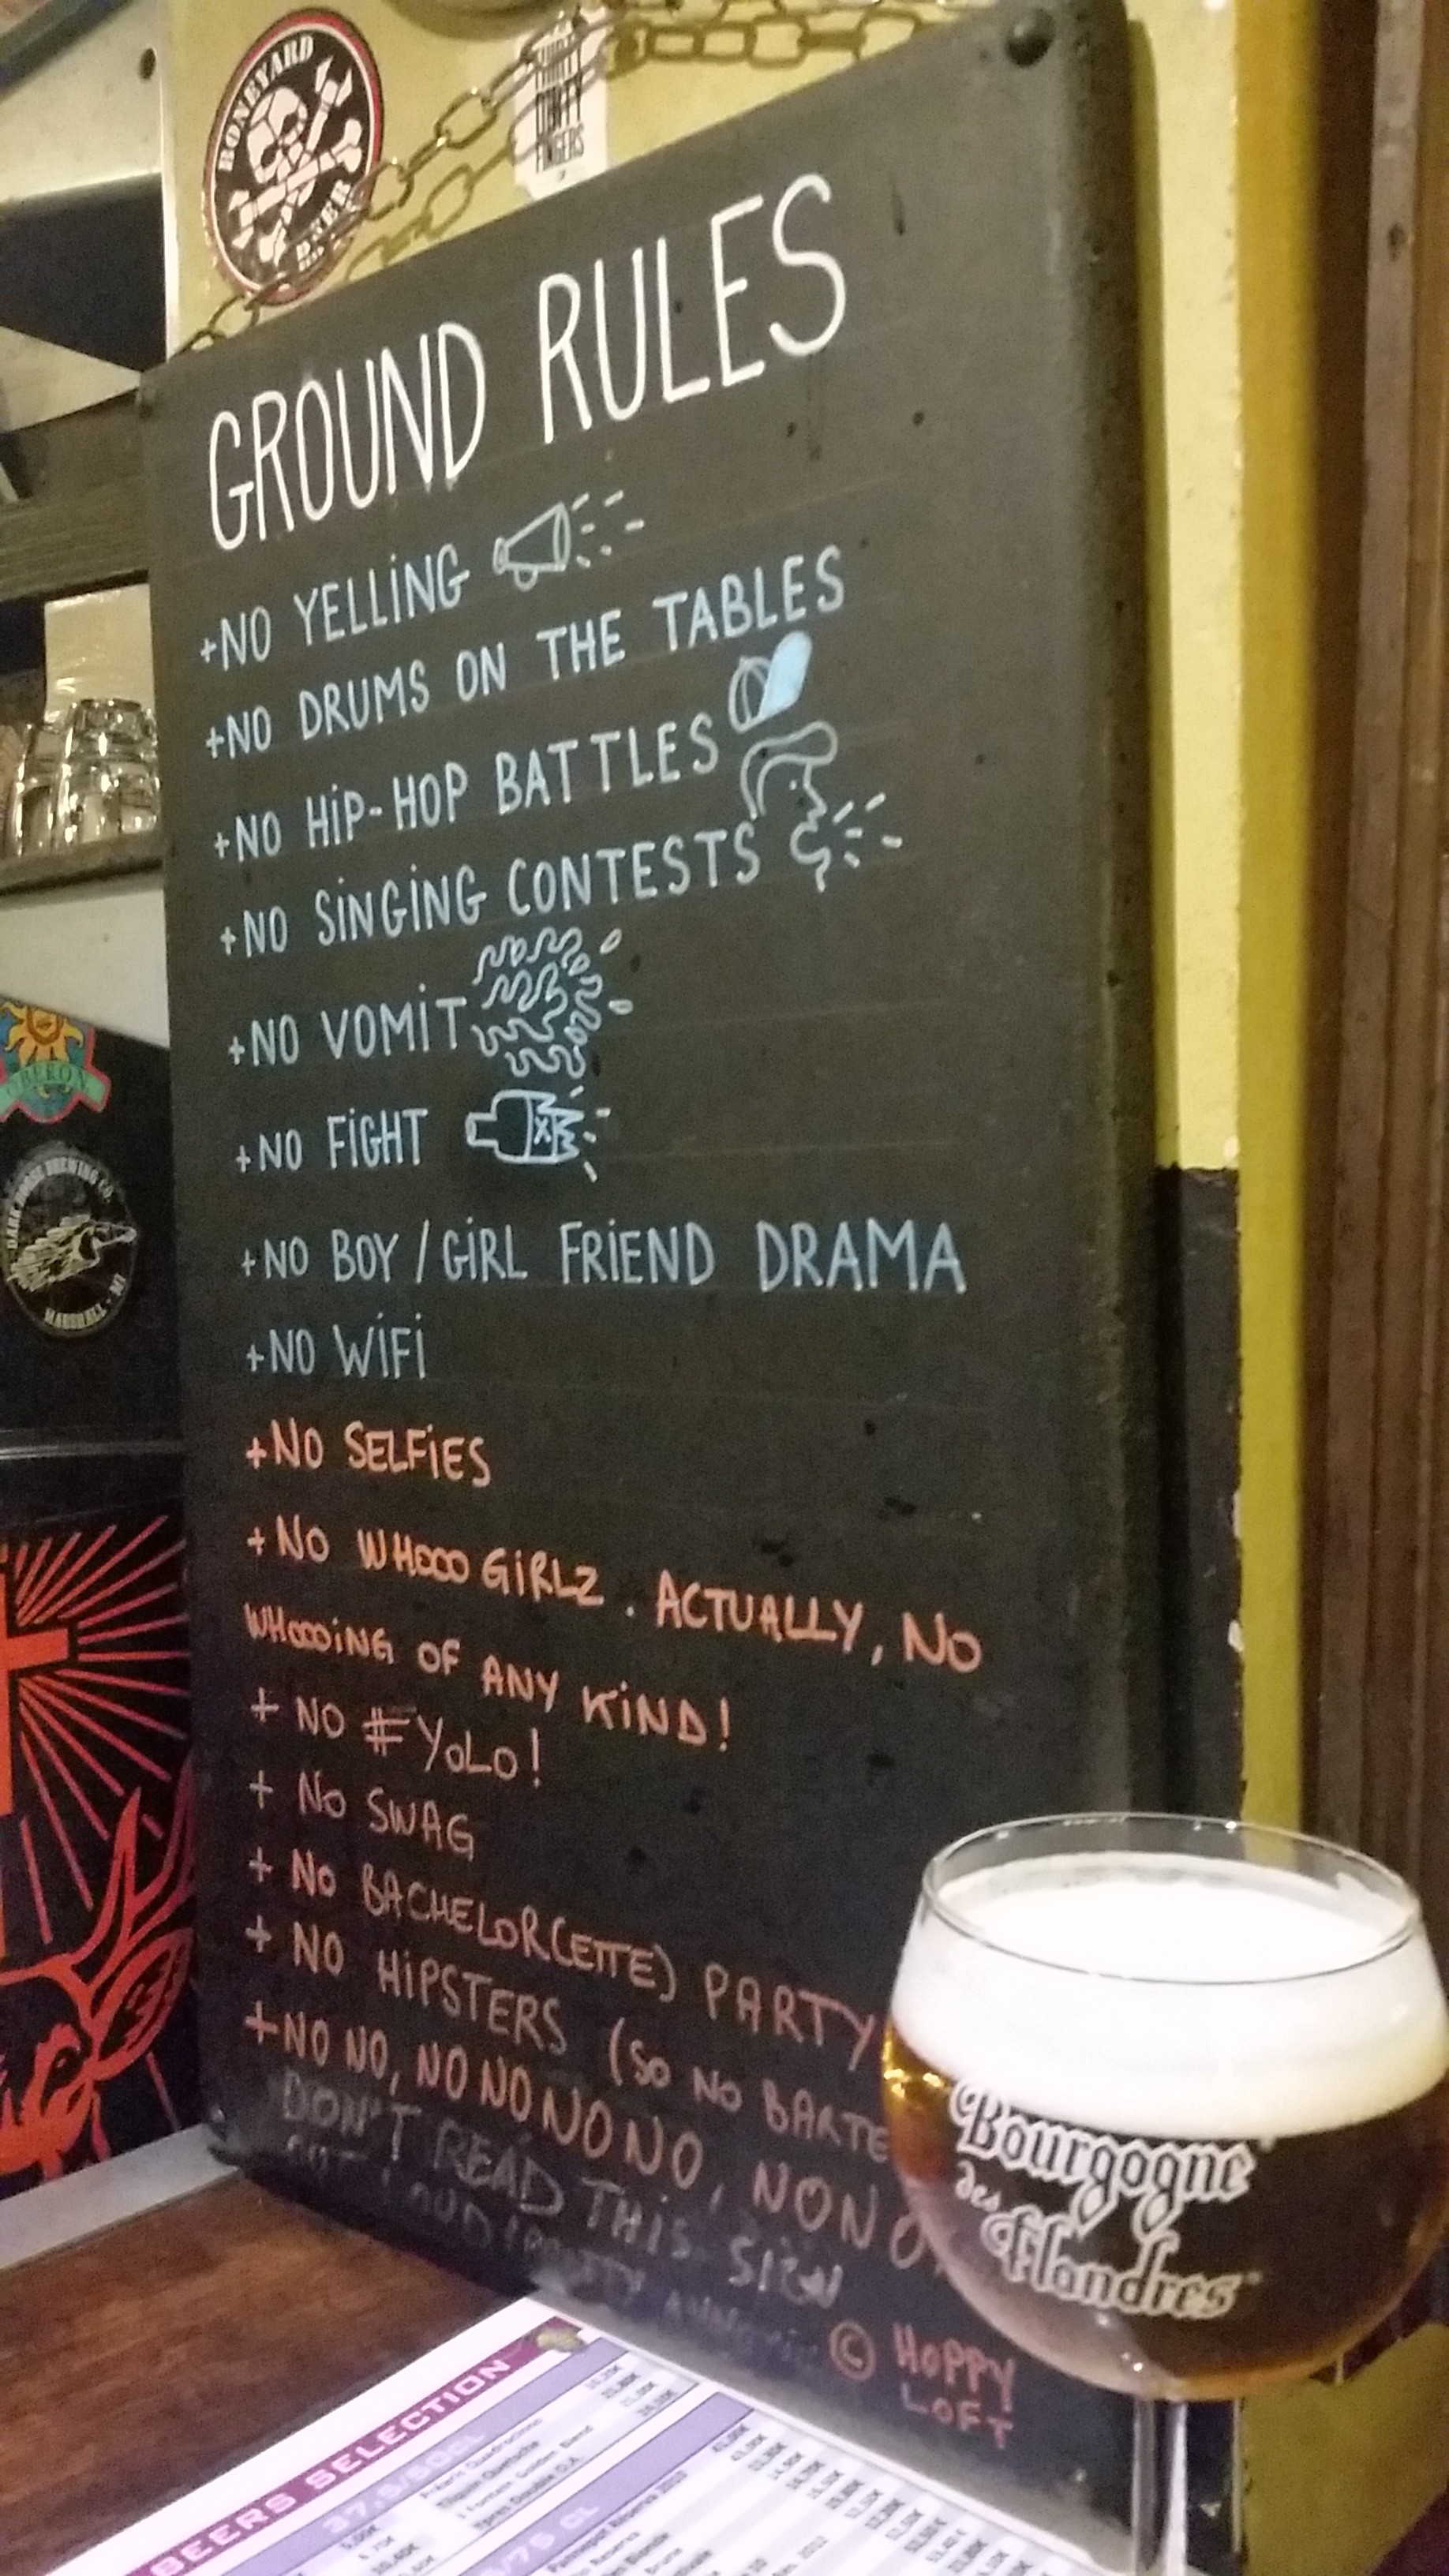 BONEYARD
BEER
THIRD
DIRTY
FINGERS
GROUND RULES
+NO YELLING
+NO DRUMS ON THE TABLES
+NO HIP-HOP BATTLES
+NO SINGING CONTESTS
+NO VOMIT
+NO FIGHT
+NO BOY / GIRL FRIEND DRAMA
+NO WIFI
+NO SELFIES
+NO WHOOO GIRLZ. ACTUALLY, NO
WHOOOING OF ANY KIND!
+ NO #YOLO!
+ NO SWAG
+ NO BACHELOR(ETTE) PARTY
+ NO HIPSTERS (SO NO BARTE
+NO NO, NO NO NO NO, NO NO
DON'T READ THIS SIGN
OUT LOUD
© HOPPY
LOFT
OBERON
DARK HORSE BREWING CO.
MARSHALL - MI
Bourgogne
des
Flandres
BEERS SELECTION
37.5/50CL
/75 CL